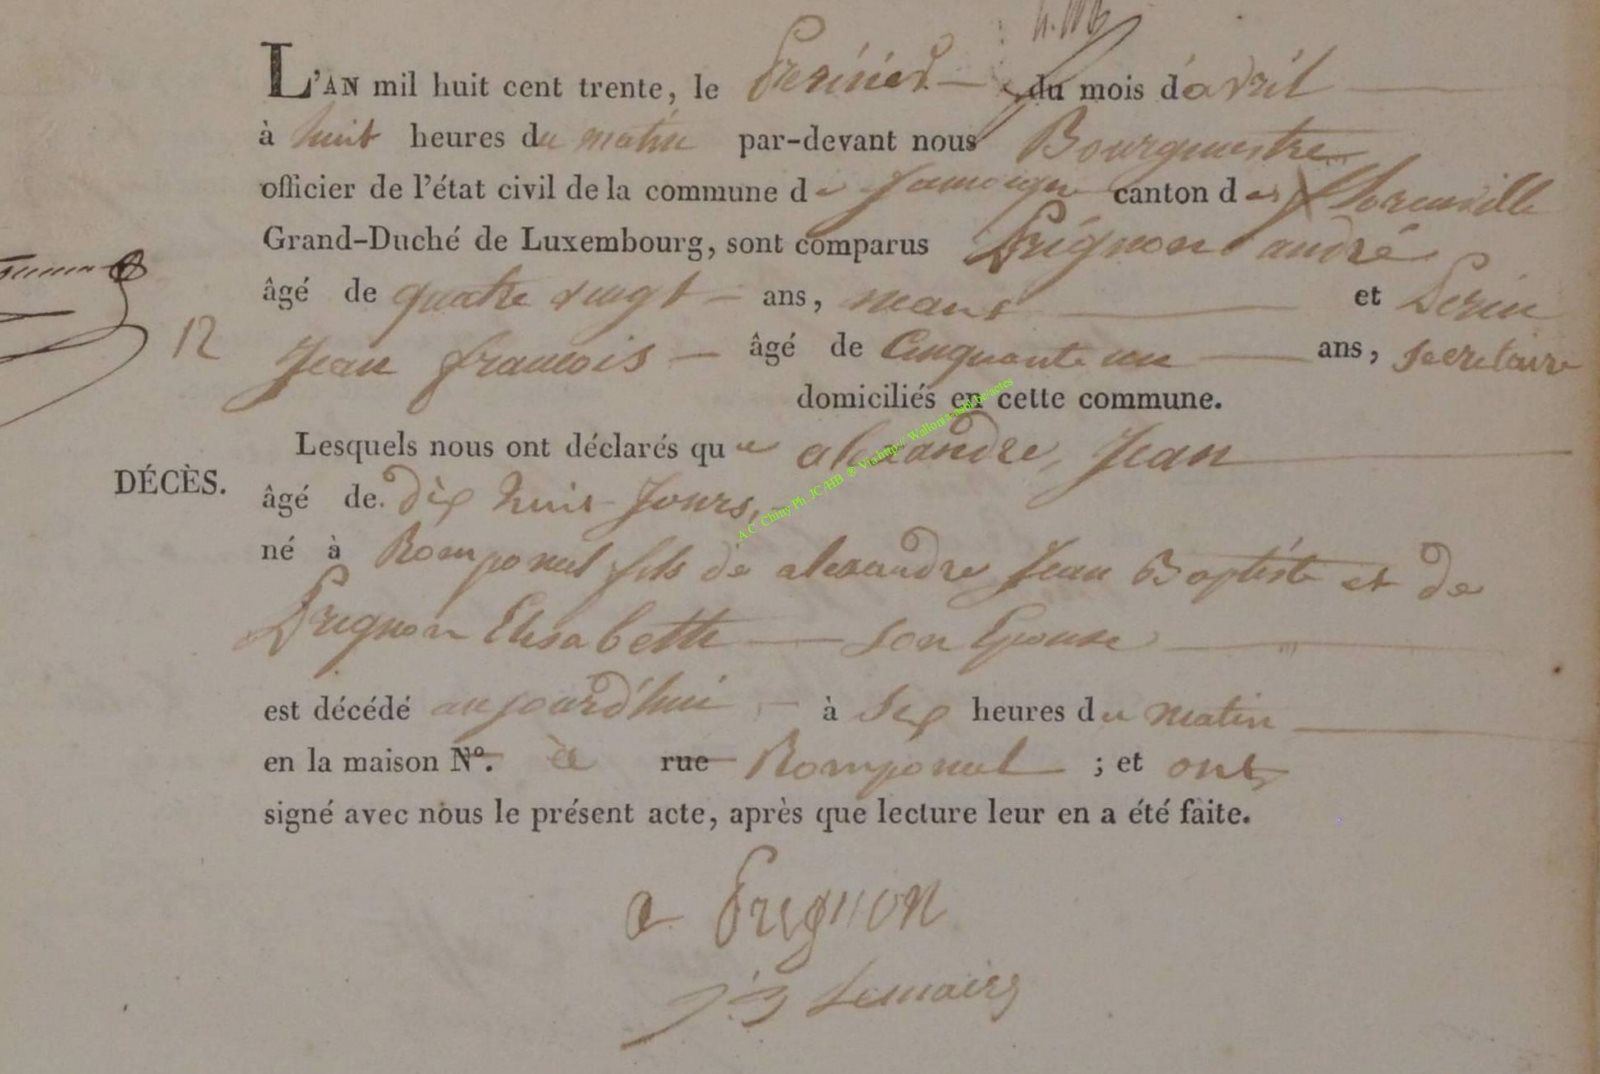 L'AN mil huit cent trente, le Premier du mois d'avril
à huit heures du matin par-devant nous Bourguestre
officier de l'état civil de la commune de Jamoigne canton de florenville
Grand-Duché de Luxembourg, sont comparus Prignon andré
âgé de quatre vingt ans, et Perin
12
Jean francois âgé de Cinquante un ans, secretaire
domiciliés en cette commune.
Lesquels nous ont déclarés que alexandre, Jean
DÉCÈS.
âgé de. dix huit Jours,
né à Romponel fils de alexandre Jean Baptiste et de
Prignon Elisabette son Epouse
est décédé aujourd'hui à Six heures du matin
en la maison N°. à rue Romponel ; et ont
signé avec nous le présent acte, après que lecture leur en a été faite.
a Prignon
J B Lemaire
A.C Chiny Ph JC/HB ® Via http://Wallonia-asbl.be/actes